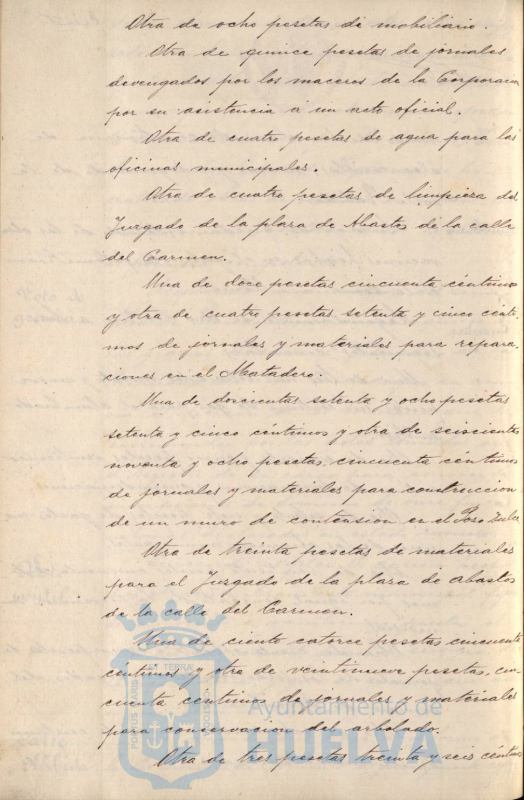 Otra de ocho pesetas de mobiliario.
Otra de quince pesetas de jornales
devengados por los maceros de la Corporacion
por su asistencia á un acto oficial.
Otra de cuatro pesetas de agua para las
oficinas municipales.
Otra de cuatro pesetas de limpieza del
Juzgado de la plaza de Abastos de la calle
del Carmen.
Una de doce pesetas cincuenta céntimos
y otra de cuatro pesetas setenta y cinco cénti-
mos de jornales y materiales para repara-
ciones en el Matadero.
Una de doscientas setenta y ocho pesetas
setenta y cinco céntimos y otra de seiscientas
noventa y ocho pesetas, cincuenta céntimos
de jornales y materiales para construccion
de un muro de contension en el Poso Dulce
Otra de treinta pesetas de materiales
para el Juzgado de la plaza de abastos
de la calle del Carmen.
Una de ciento catorce pesetas cincuenta
centimos y otra de veintinueve pesetas, cin-
cuenta centimos de jornales y materiales
para conservacion del arbolado.
Otra de tres pesetas treinta y seis céntimos
Ayuntamiento de
HUELVA
PORTUS MARIS ET TERRAE CUSTODIA